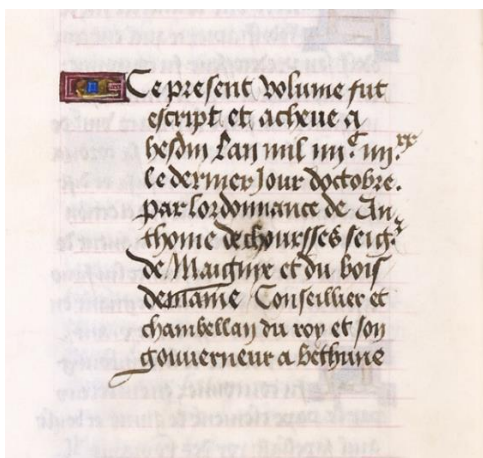 Ce present volume fut
escript et acheue a
hesdin Lan mil iiij.c iiij.xx
le dernier Jour doctobre.
par lordonnance de An
thoine de choursses seigr
de Maigne et du bois
demaine Conseillier et
chambellan du roy et son
gouuerneur a bethune